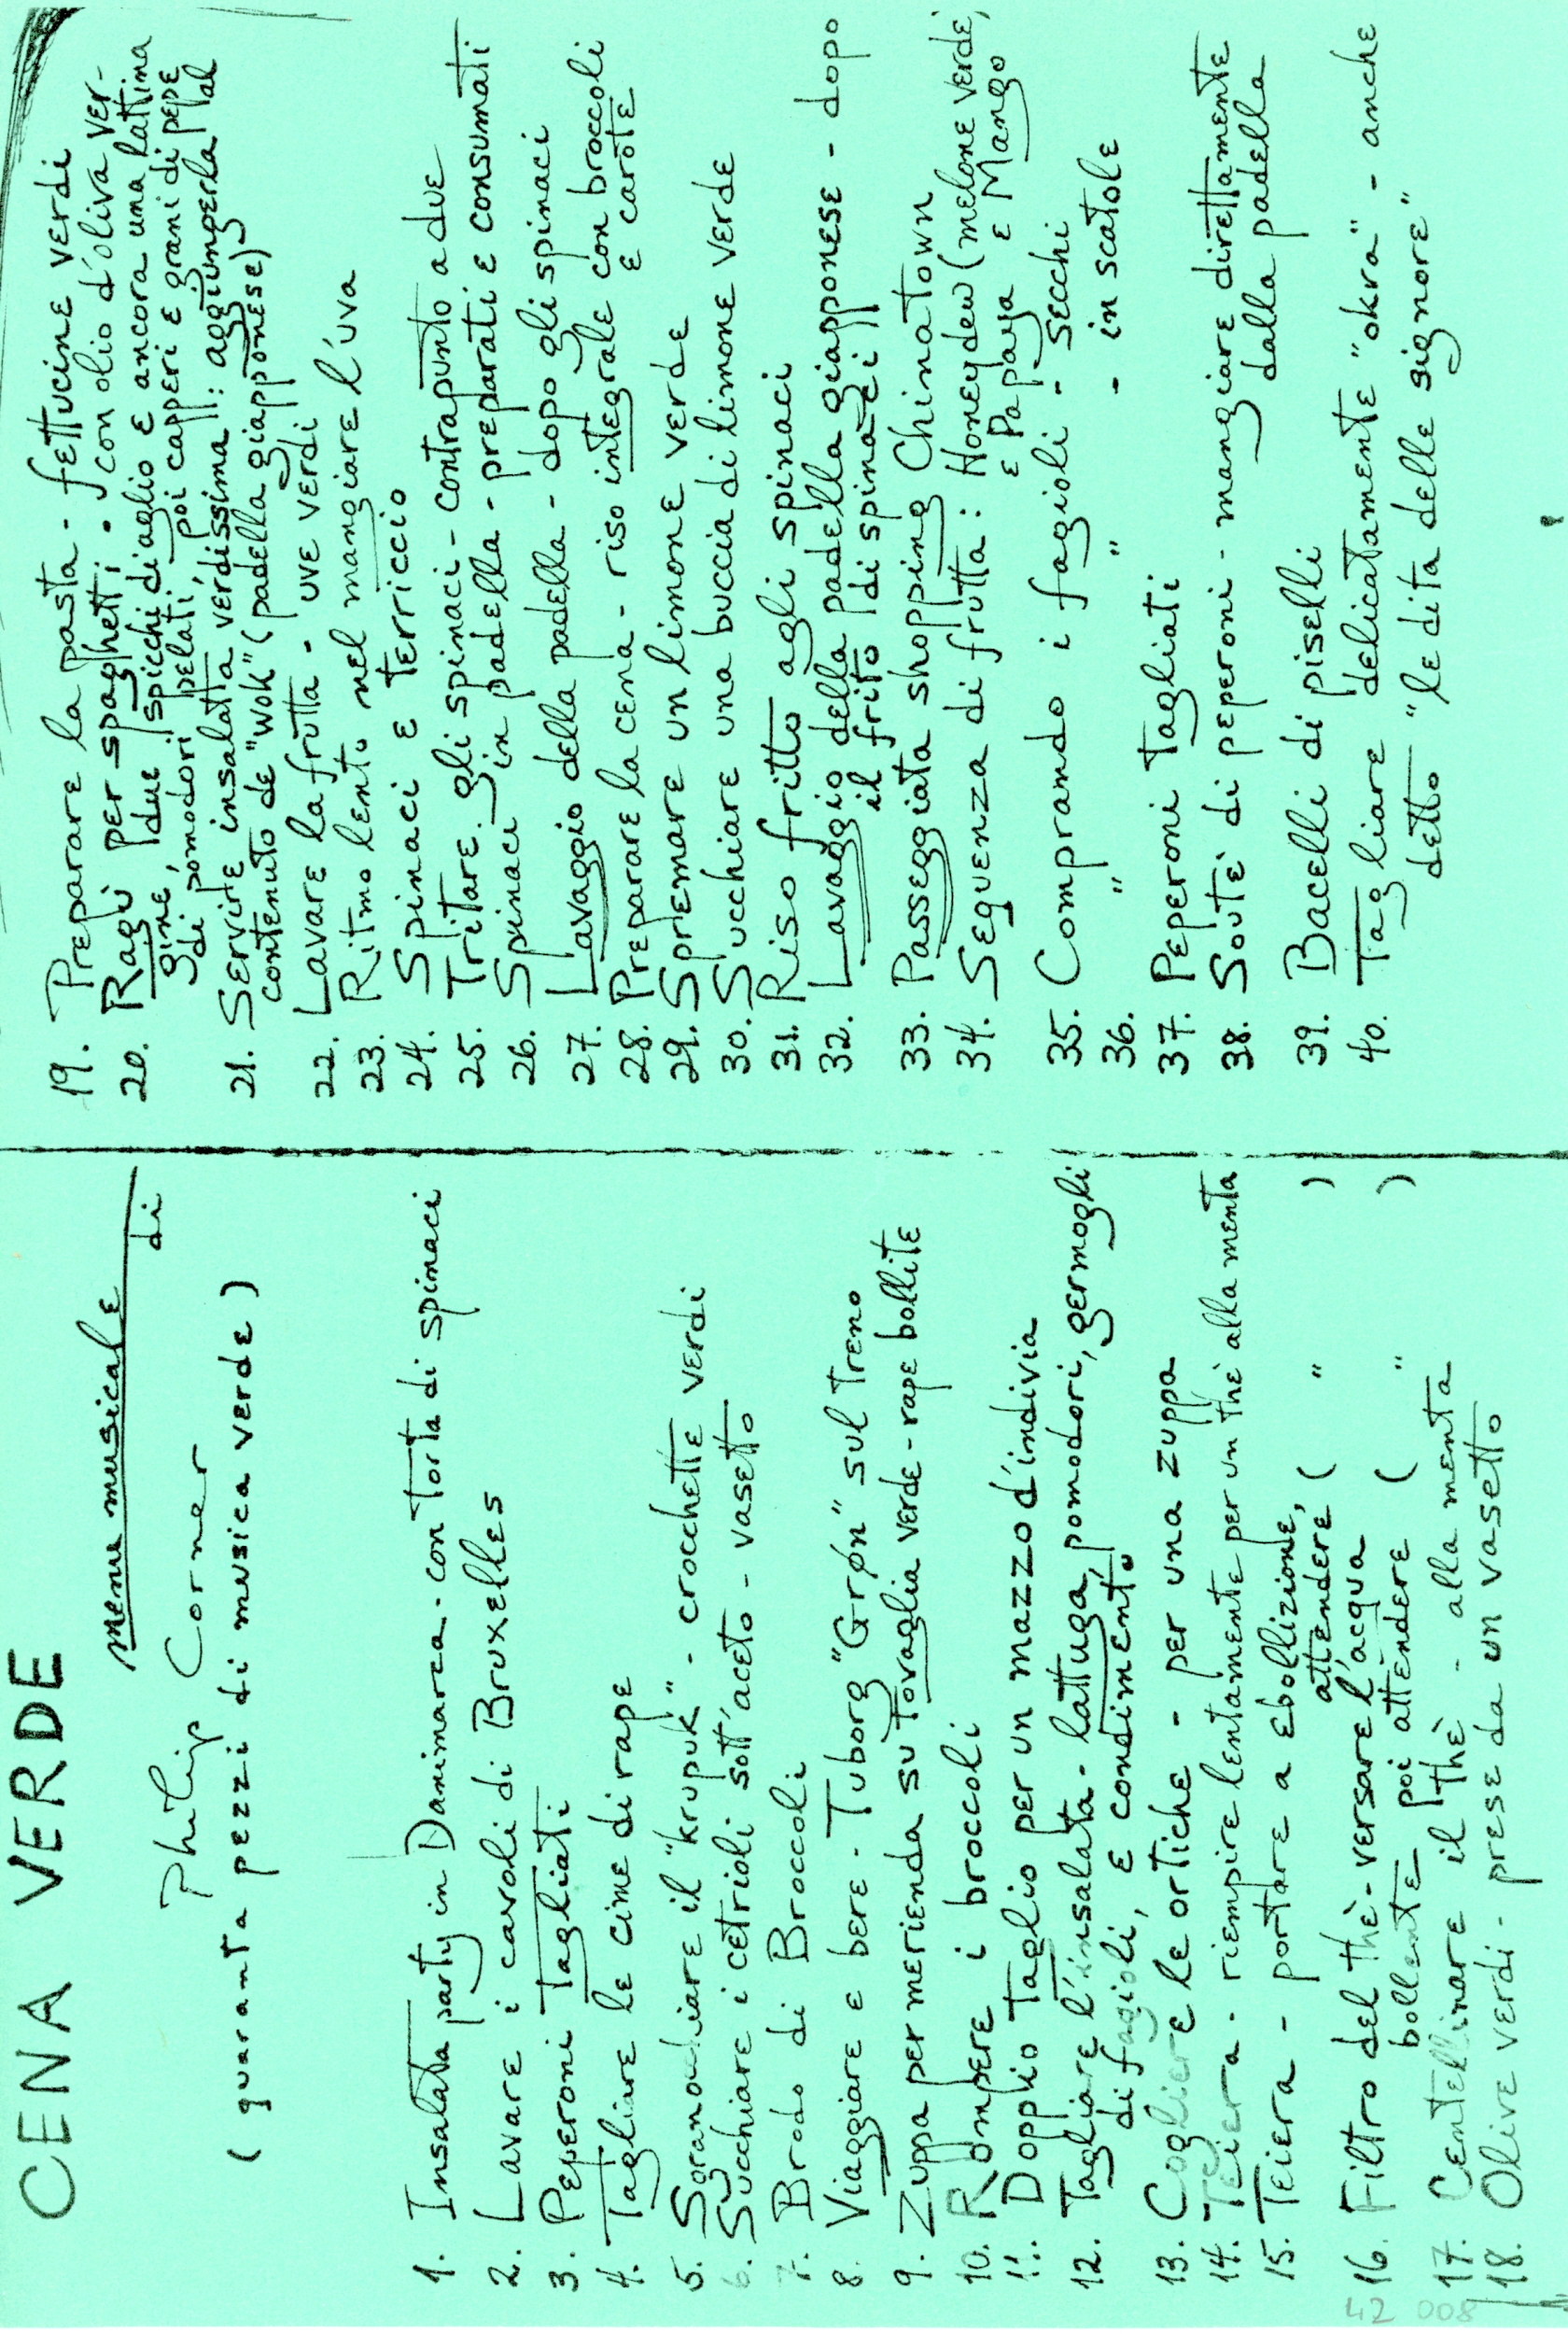 CENA VERDE
menu musicale
di
Philip Corner
( quaranta pezzi di musica verde )
1. Insalata party in Danimarca - con torta di spinaci
2. Lavare i cavoli di Bruxelles
3. Peperoni tagliati
4. Tagliare le cime di rape
5. "krupuk" - crocchette verdi
6. Succhiare i cetrioli sott'aceto - vasetto
7. Brodo di Broccoli
8. Viaggiare e bere - Tuborg "Grøn" sul treno
9. Zuppa per merienda su tovaglia verde - rape bollite
10. Rompere i broccoli
11. Doppio taglio per un mazzo d'indivia
12. Tagliare l'insalata - lattuga, pomodori, germogli
di fagioli, e condimento
13. Cogliere le ortiche - per una zuppa
14. Teiera - riempire lentamente per un thé alla menta
15. Teiera - portare a ebollizione,
attendere ( " )
16. Filtro del thè - versare l'acqua
bollente poi attendere ( " )
17. Centellinare il thè - alla menta
18. Olive verdi - prese da un vasetto
42 008
19. Preparare la pasta - fettucine verdi
20. Ragù per spaghetti - con olio d'oliva ver-
gine, due spicchi di aglio e ancora una lattina
di pomodori pelati, poi capperi e grani di pepe
21. Servire insalata verdissima : aggiungerla al
contenuto de "wok" (padella giapponese)
22. Lavare la frutta - uve verdi
23. Ritmo lento nel mangiare l'uva
24. Spinaci e terriccio
25. Tritare gli spinaci - contrapunto a due
26. Spinaci in padella - preparati e consumati
27. Lavaggio della padella - dopo gli spinaci
28. Preparare la cena - riso integrale con broccoli
e carote
29. Spremare un limone verde
30. Succhiare una buccia di limone verde
31. Riso fritto agli spinaci
32. Lavaggio della padella giapponese - dopo
il frito di spinaci
33. Passeggiata shopping Chinatown
34. Sequenza di frutta : Honeydew (melone verde)
e Papaya e Mango
35. Comprando i fagioli - secchi
36. " " - in scatole
37. Peperoni tagliati
38. Souté di peperoni - mangiare direttamente
dalla padella
39. Bacelli di piselli
40. Tagliare delicatamente "okra" - anche
detto "le dita delle signore"